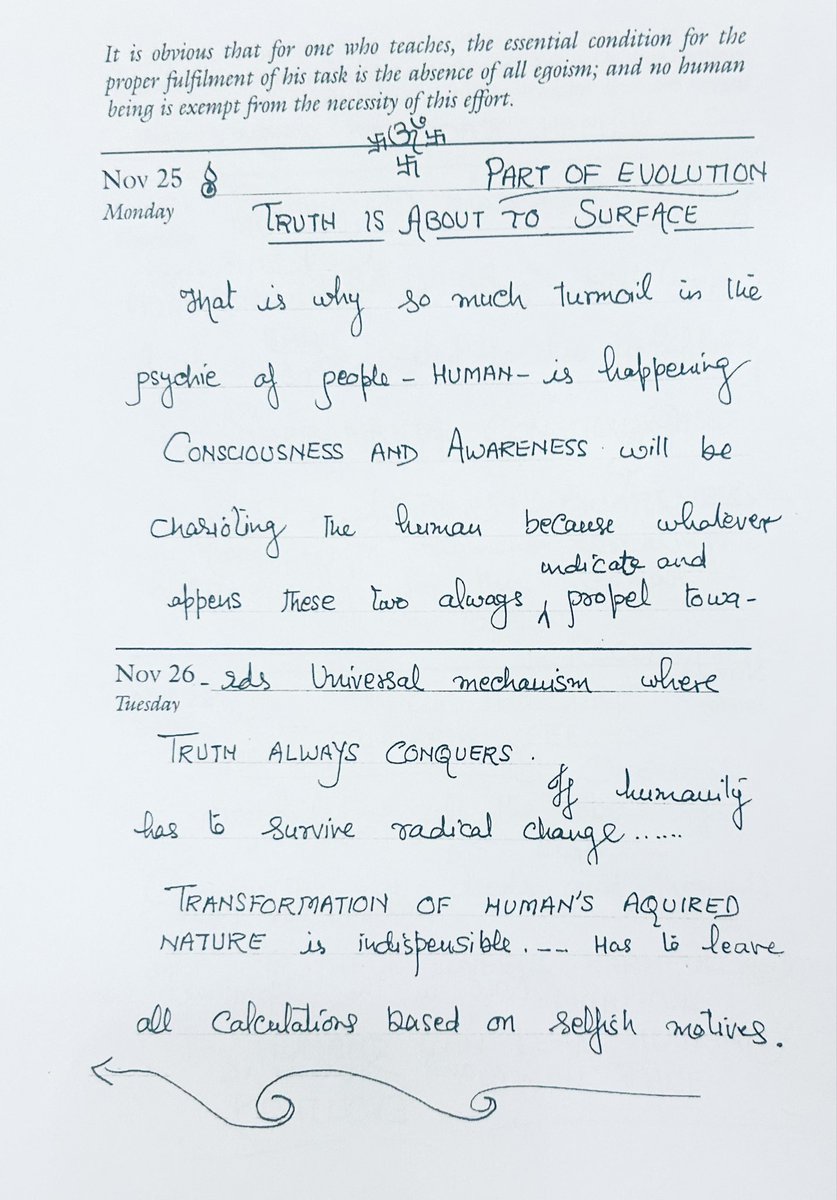 It is obvious that for one who teaches, the essential condition for the
proper fulfilment of his task is the absence of all egoism; and no human
being is exempt from the necessity of this effort.
卐ॐ卐
卐
Nov 25 PART OF EVOLUTION
Monday TRUTH IS ABOUT TO SURFACE
That is why so much turmoil in the
psychie of people - HUMAN - is happening
CONSCIOUSNESS AND AWARENESS will be
charioting The human because whatever
indicate and
appens these two always ⁁ propel towa-
Nov 26 - rds Universal mechanism where
Tuesday
TRUTH ALWAYS CONQUERS.
If humanity
has to survive radical change......
TRANSFORMATION OF HUMAN'S AQUIRED
NATURE is indispensible. -- Has to leave
all calculations based on selfish motives.